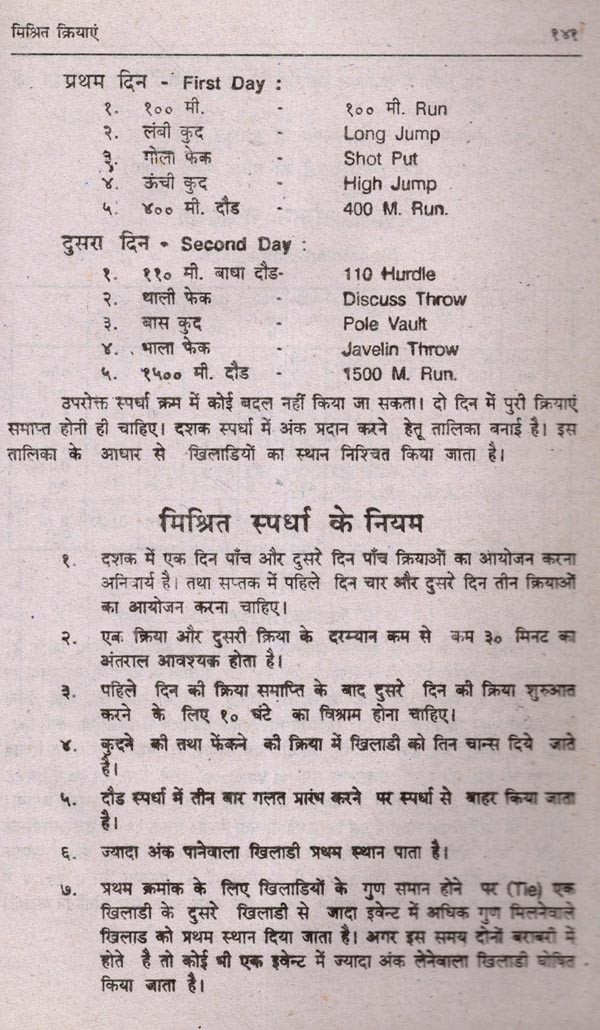 मिश्रित क्रियाएं १४१
प्रथम दिन - First Day :
१. १०० मी. - १०० मी. Run
२. लंबी कुद - Long Jump
३. गोला फेक - Shot Put
४. ऊंची कुद - High Jump
५. ४०० मी. दौड - 400 M. Run.
दुसरा दिन - Second Day :
१. ११० मी. बाधा दौड- 110 Hurdle
२. थाली फेक - Discuss Throw
३. बास कुद - Pole Vault
४. भाला फेक - Javelin Throw
५. १५०० मी. दौड - 1500 M. Run.
उपरोक्त स्पर्धा क्रम में कोई बदल नहीं किया जा सकता। दो दिन में पुरी क्रियाएं
समाप्त होनी ही चाहिए। दशक स्पर्धा में अंक प्रदान करने हेतू तालिका बनाई है। इस
तालिका के आधार से खिलाडियों का स्थान निश्चित किया जाता है।
मिश्रित स्पर्धा के नियम
१. दशक में एक दिन पाँच और दुसरे दिन पाँच क्रियाओं का आयोजन करना
अनिवार्य है। तथा सप्तक में पहिले दिन चार और दुसरे दिन तीन क्रियाओं
का आयोजन करना चाहिए।
२. एक क्रिया और दुसरी क्रिया के दरम्यान कम से कम ३० मिनट का
अंतराल आवश्यक होता है।
३. पहिले दिन की क्रिया समाप्ति के बाद दुसरे दिन की क्रिया शुरुआत
करने के लिए १० घंटे का विश्राम होना चाहिए।
४. कुदने की तथा फेंकने की क्रिया में खिलाडी को तिन चान्स दिये जाते
है।
५. दौड स्पर्धा में तीन बार गलत प्रारंभ करने पर स्पर्धा से बाहर किया जाता
है।
६. ज्यादा अंक पानेवाला खिलाडी प्रथम स्थान पाता है।
७. प्रथम क्रमांक के लिए खिलाडियों के गुण समान होने पर (Tie) एक
खिलाडी के दुसरे खिलाडी से जादा इवेन्ट में अधिक गुण मिलनेवाले
खिलाड को प्रथम स्थान दिया जाता है। अगर इस समय दोनों बराबरी में
होते है तो कोई भी एक इवेन्ट में ज्यादा अंक लेनेवाला खिलाडी घोषित
किया जाता है।